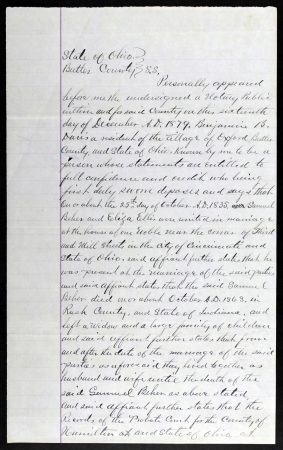 State of Ohio
Butler County } S.S.
Personally appeared
before me the undersigned a Notary Public
within and for said County on this sixteenth
day of December A.D. 1879, Benjamin B.
Davis a resident of the village of Oxford Butler
County and State of Ohio known by me to be a
person whose statements are entitled to
full confidence and credit who being
first duly sworn deposes and says that
on or about the 25th day of October A.D. 1835, Samuel
and Eliza Ellis were united in marriage
at the house of one Noble near the corner of Third
and Mill Streets in the city of Cincinnati and
State of Ohio and affiant further states that he
was present at the marriage of the said parties
and said affiant states that the said Samuel
died on or about October A.D. 1863, in
Rush County, and State of Indiana, and
left a widow and a large family of children
and said affiant further states that from
and after the date of the marriage of the said
parties as aforesaid they lived together as
husband and wife until the death of the
said Samuel as above stated,
and said affiant further states that the
Records of the Probate Court for the County of
Hamilton and State of Ohio at